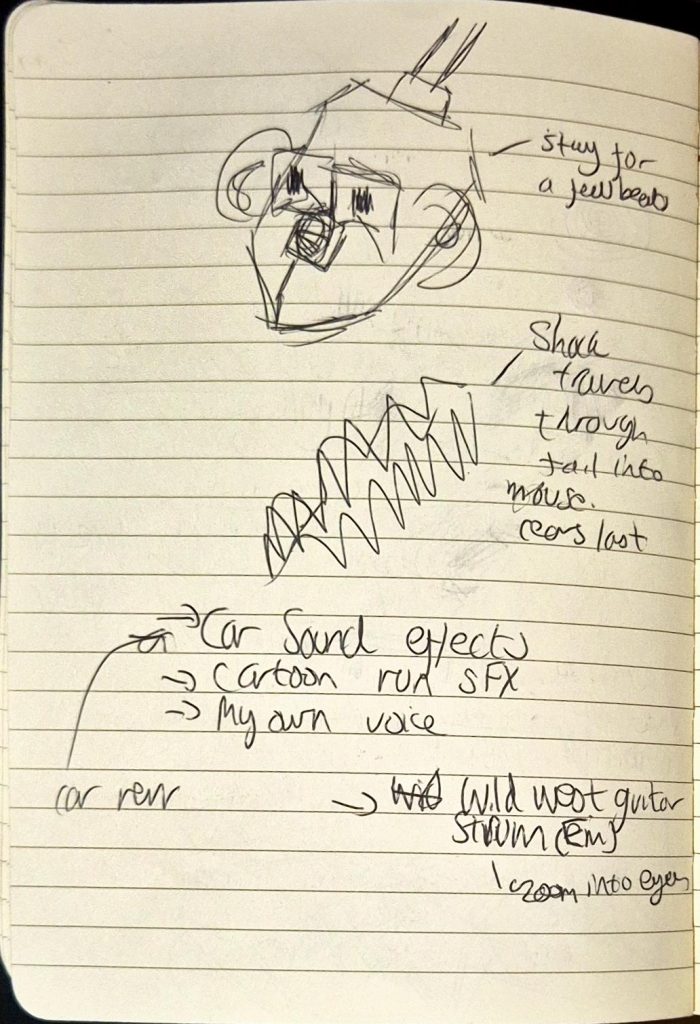 stay for
a few beats
Shock
travels
through
tail into
mouse.
ears last
→ Car Sound effects
→ Cartoon run SFX
→ My own voice
car revv
→ Wild West guitar
Strum (Em)
zoom into eyes